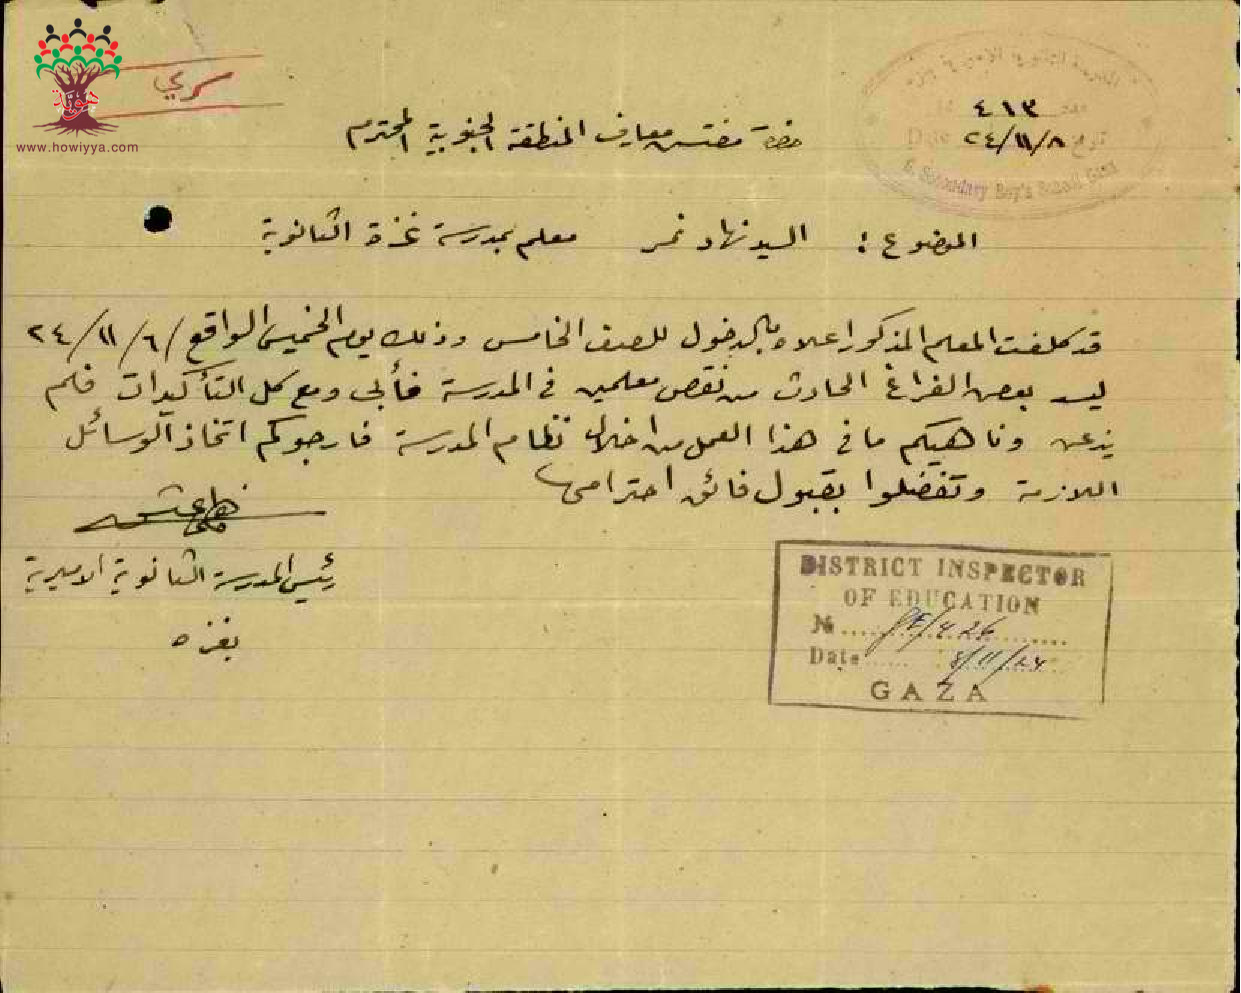 هوية
www.howiyya.com
سري
٤١٣
Date ٢٤/١١/٨
G. Secondary Boy's School Gaza
حضرة مفتش معارف المنطقة الجنوبية المحترم
الموضوع : السيد نهاد نمر معلم بمدرسة غزة الثانوية
قد كلفت المعلم المذكور اعلاه بالدخول للصف الخامس وذلك يوم الخميس الواقع ٢٤/١١/٦
ليسد بعض الفراغ الحادث من نقص معلمين في المدرسة فأبى ومع كل التأكيدات فلم
يذعن وناهيكم ما في هذا العمل من اخلال نظام المدرسة فارجوكم اتخاذ الوسائل
اللازمة وتفضلوا بقبول فائق احترامي
رئيس المدرسة الثانوية الاميرية
بغزه
DISTRICT INSPECTOR
OF EDUCATION
No
Date 8/11/24
GAZA